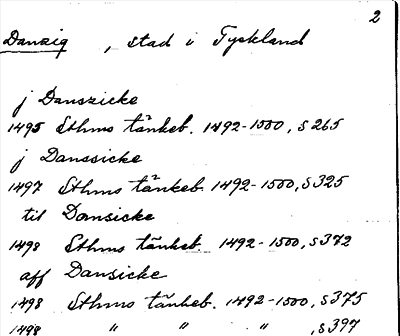 2
Danzig , stad i Tyskland
j Danszicke
1495 Sthms tänkeb. 1492-1500, s 265
j Danssicke
1497 Sthms tänkeb. 1492-1500, s 325
til Dansicke
1498 Sthms tänkeb. 1492-1500, s 372
aff Dansicke
1498 Sthms tänkeb. 1492-1500, s 375
1498 " " " , s 397